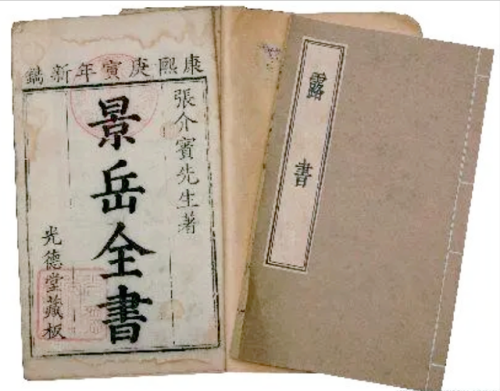 康熙庚寅年新鐫
張介賓先生著
景岳全書
光德堂藏板
露書